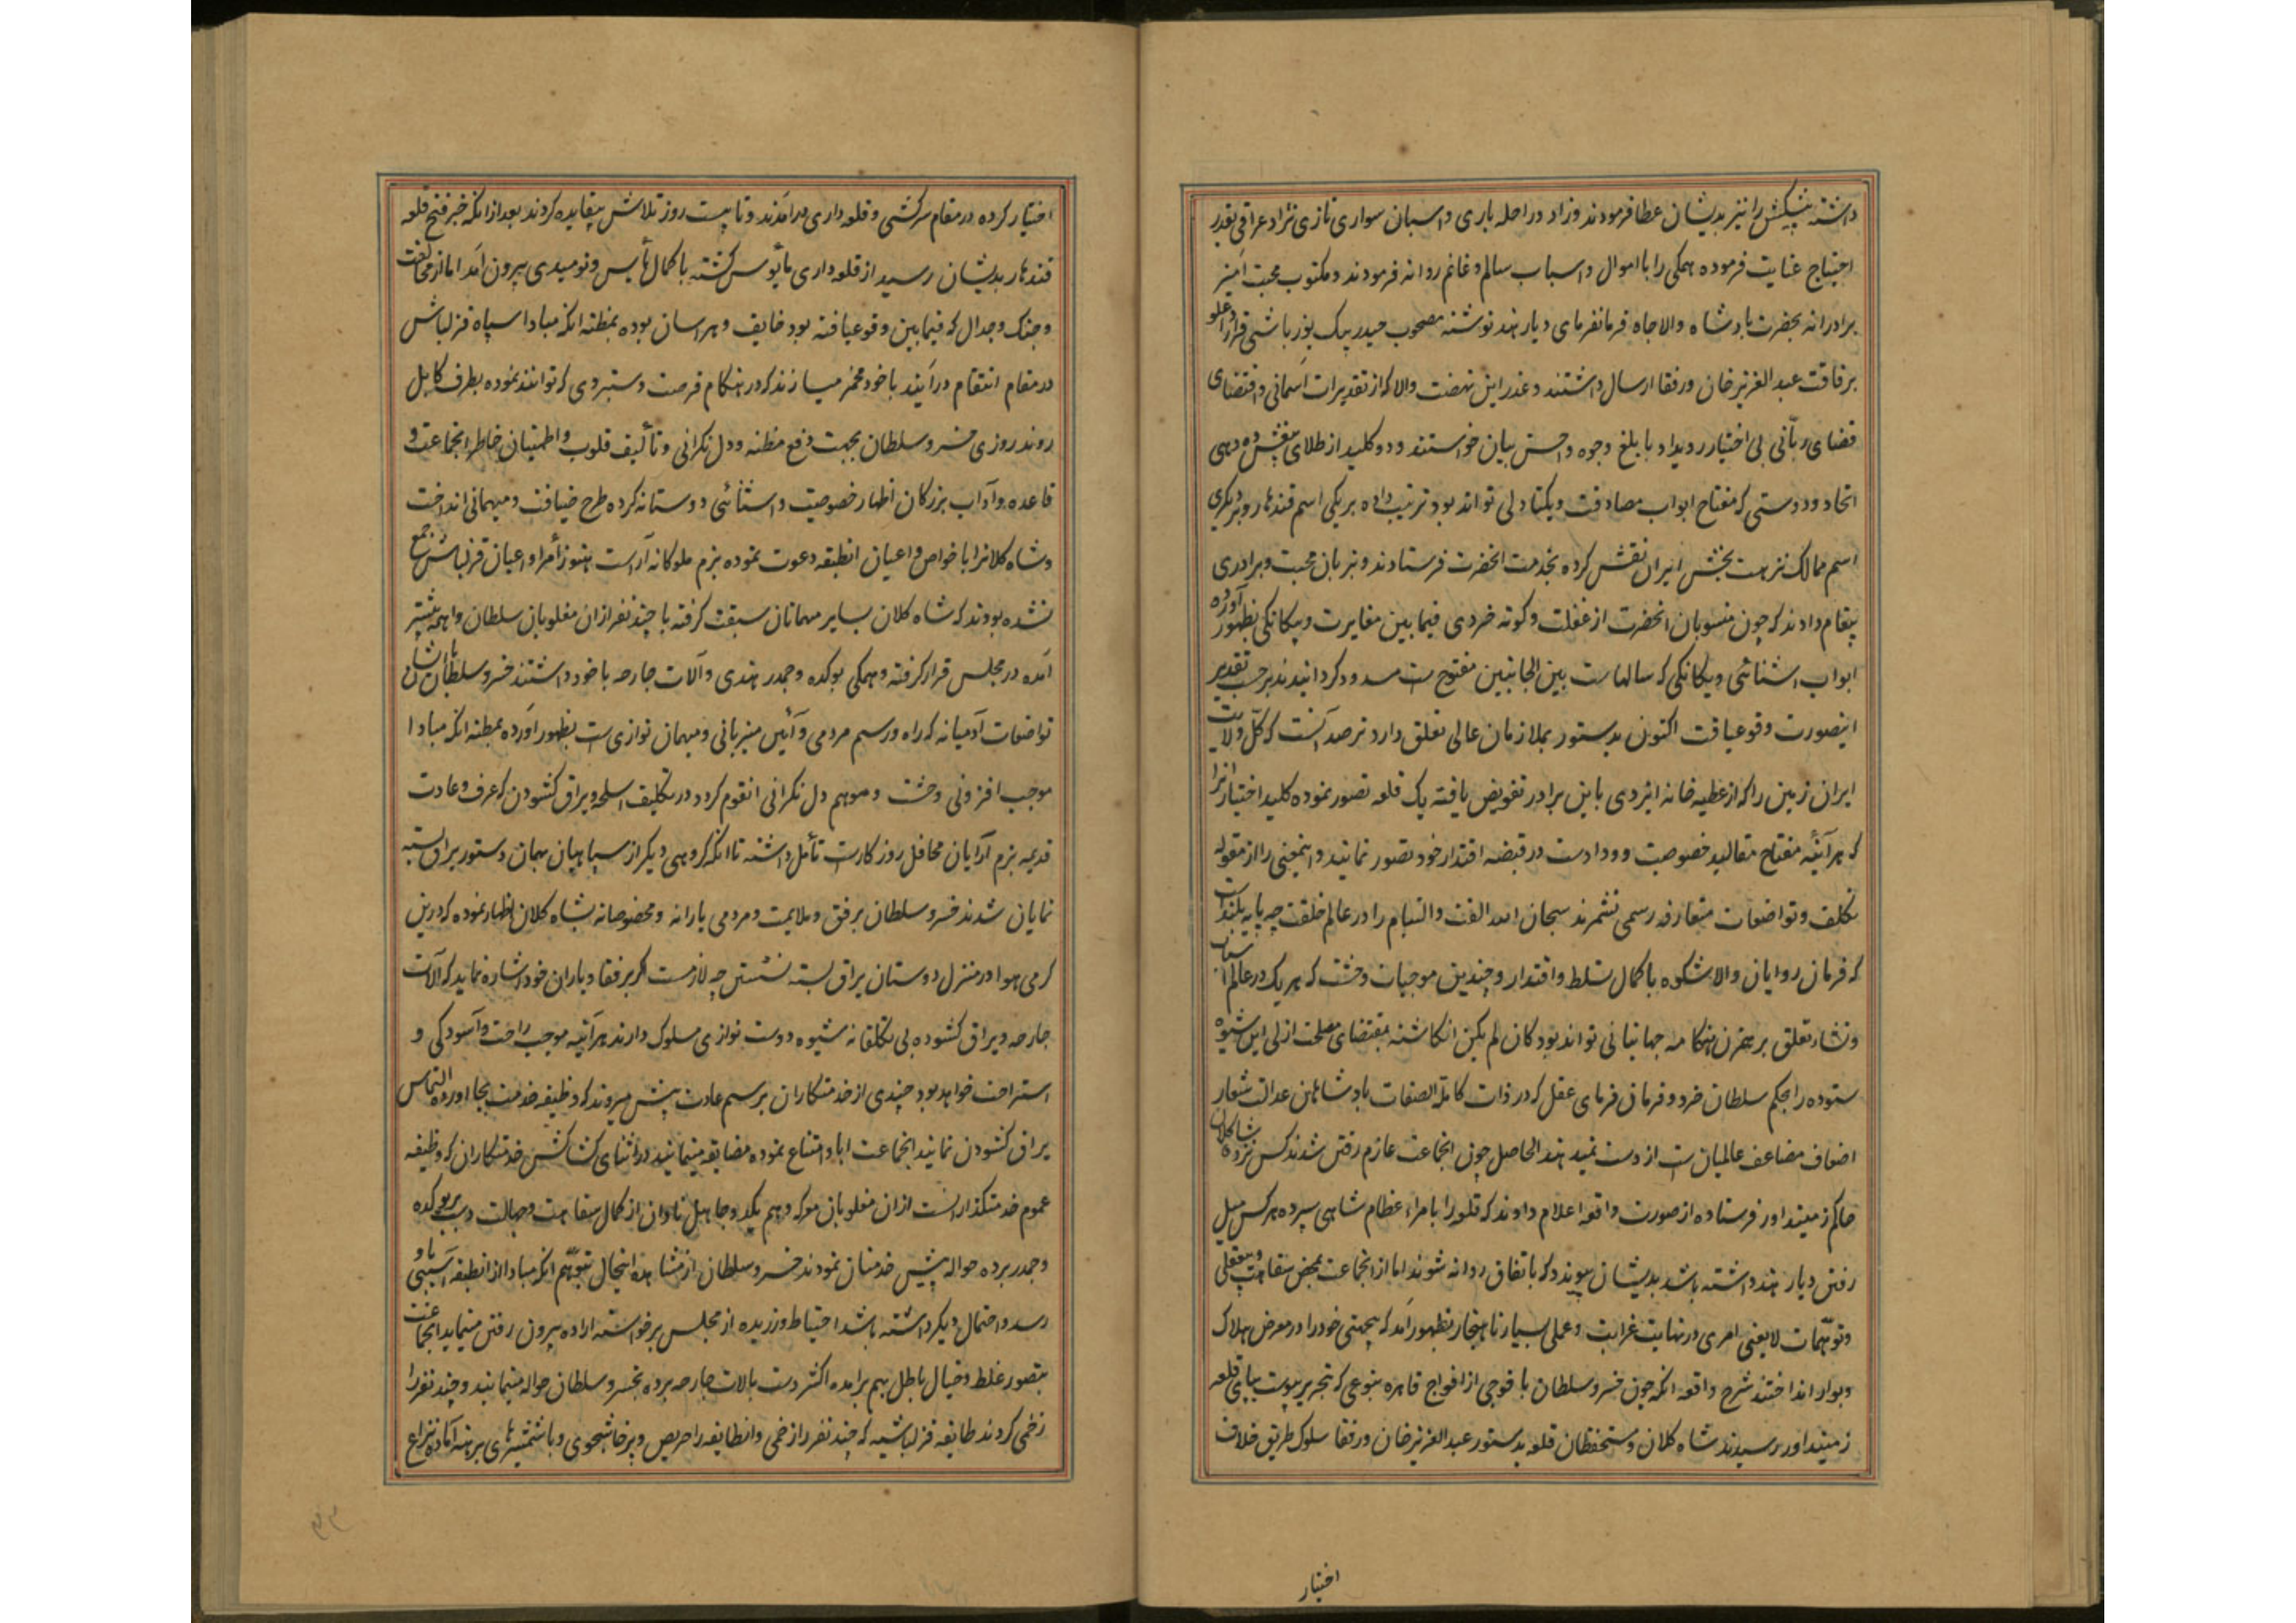 داشته پیشکش را نیز بدیشان عطا فرمودند و زاد و راحله باری و اسبان سواری تازی نژاد عراقی بقدر
احتیاج عنایت فرموده همکی را با اموال و اسباب سالم و غانم روانه فرمودند و مکتوب محبت آمیز
برادرانه بحضرت پادشاه والاجاه فرمانفرمای دیار هند نوشته مصحوب حیدر بیک یوزباشی قراداغلو
برفاقت عبدالعزیز خان و رفقا ارسال داشتند و عذر این نهضت والا که از تقدیرات آسمانی و اقتضای
قضای ربّانی بی اختیار رویداد بابلغ وجوه و احسن بیان خواستند و دو کلید از طلای منقش ده دهی
اتحاد و دوستی که مفتاح ابواب مصادقت و یکتادلی تواند بود ترتیب داده بر یکی اسم قندهار و بر دیگری
اسم ممالک نزهت بخش ایران نقش کرده بخدمت انحضرت فرستادند و بزبان محبت و برادری
پیغام دادند که چون منسوبان انحضرت از غفلت و کوته خردی فیمابین مغایرت و بیکانکی بظهور آورده
ابواب اشنائی و یکانکی که سالهاست بین الجانبین مفتوح ست مسدود کردانیدند بر حسب تقدیر
اینصورت وقوعیافت اکنون بدستور بملازمان عالی تعلق دارد ترصد آنست که کلّ ولایت
ایران زمین را که از عطیه خانه ایزدی باین برادر تفویض یافته یک قلعه تصور نموده کلید اختیار انرا
که هرآئنه مفتاح مقالید خصوصیت و ودادست در قبضه اقتدار خود تصور نمایند و اینمعنی را از مقوله
تکلف و تواضعات متعارفه رسمی نشمرند سبحان الله الفت و التیام را در عالم خلقت چه پایه بلندست
که فرمان روایان والاشکوه با کمال تسلط و اقتدار و چندین موجبات وحشت که هر یک در عالم اسباب
و نشاء تعلق برهمزن هنکامه جهانبانی تواند بود کان لم یکن انکاشته بمقتضای مصلحت ازلی این شیوه
ستوده را بحکم سلطان خرد و فرمان فرمای عقل که در ذات کاملة الصفات پادشاهان عدالت شعار
اضعاف مضاعف عالمیان ست از دست نمیدهند الحاصل چون انجماعت عازم رفتن شدند کس نزد شاه کلان
حاکم زمینداور فرستاده از صورت واقعه اعلام دادند که قلعه را بامراء عظام شاهی سپرده هرکس میل
رفتن دیار هند داشته باشد بدیشان پیوندد که باتفاق روانه شوند اما از انجماعت بمحض سفاهت و بیعقلی
و توهّمات لایعنی امری در نهایت غرابت و عملی بسیار ناهنجار بظهور آمد که بیجهتی خود را در معرض هلاک
و بوار انداختند شرح واقعه انکه چون خسرو سلطان با فوجی از افواج قاهره بنوعی که تحریر پیوست بپای قلعه
زمینداور رسیدند شاه کلان و مستحفظان قلعه بدستور عبدالعزیز خان و رفقا سلوک طریق خلاف
اختیار
اختیار کرده در مقام سرکشی و قلعه داری درآمدند و تا بیست روز تلاش بیفایده کردند بعد از انکه خبر فتح قلعه
قندهار بدیشان رسید از قلعه داری مأیوس کشته با کمال یأس و نومیدی بیرون آمد اما از مخالفت
و جنک و جدال که فیمابین وقوعیافته بود خایف و هراسان بوده بمظنه انکه مبادا سپاه قزلباش
در مقام انتقام درآیند با خود مخمر میسازند که در هنکام فرصت دستبردی که توانند نموده بطرف کابل
روند روزی خسرو سلطان بجهت دفع مظنه و دل نکرانی و تألیف قلوب و اطمینان خاطر انجماعت و
قاعده و آداب بزرکان اظهار خصوصیت و اشنائی دوستانه کرده طرح ضیافت و میهمانی انداخت
و شاه کلانرا با خواص و اعیان انطبقه دعوت نموده بزم ملوکانه آراست هنوز أمرا و اعیان قزلباش جمع
نشده بودند که شاه کلان بسایر مهمانان سبقت کرفته با چند نفر از ان مغلوبان سلطان واهمه پیشتر
آمده در مجلس قرار کرفته و همکی بوکده و جمدر هندی و آلات جارحه با خود داشتند خسرو سلطان بایشان
تواضعات آدمیانه که راه و رسم مردمی و آئین میزبانی و میهمان نوازی ست بظهور آورده بمظنه انکه مبادا
موجب افزونی وحشت و موهم دل نکرانی انقوم کردد در تکلیف اسلحه و یراق کشودن که عرف و عادت
قدیمه بزم آرایان محافل روزکارست تأمل داشته تا انکه کروهی دیکر از سپاهیان بهمان دستور یراق بسته
نمایان شدند خسرو سلطان برفق و ملایمت و مردمی یارانه و مخصوصانه بشاه کلان اظهار نموده که درین
کرمی هوا در منزل دوستان یراق بسته نشستن چه لازمست اکر برفقا و یاران خود اشاره نماید که آلات
جارحه و یراق کشوده بی تکلفانه شیوه دوست نوازی مسلوک دارند هرآئینه موجب راحت و آسودکی و
استراحت خواهد بود چندی از خدمتکاران برسم عادت پیش میروند که وظیفه خدمت بجا اورده التماس
یراق کشودن نمایند انجماعت ابا و امتناع نموده مضایقه مینمایند در اثنای کشاکش خدمتکاران که وظیفه
عموم خدمتکذارانست از ان مغلوبان معرکه وهم یکدو جاهل نادان از کمال سفاهت و جهالت دست بر بوکده
و جمدر برده حواله پیش خدمتان نمودند خسرو سلطان از مشاهده اینحال بتوهّم انکه مبادا از انطبقه باو آسیبی
رسد و احتمال دیکر داشته باشد احتیاط ورزیده از مجلس برخواسته اراده بیرون رفتن مینماید انجماعت
بتصور غلط و خیال باطل بهم برامده اکثر دست بالات جارحه برده بخسرو سلطان حواله مینمایند و چند نفر را
زخمی کردند طایفه قزلباشیه که چند نفر را زخمی و انطایفه را حریص و پرخاشجوی و با شمشیرهای برهنه آماده نزاع